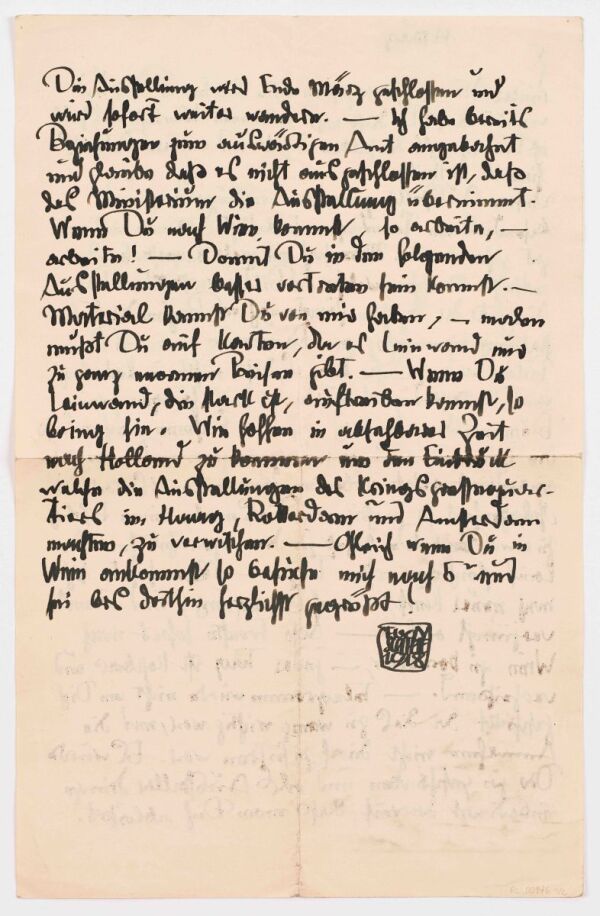 Die Ausstellung wird Ende März geschlossen und
wird sofort weiter wandern. — Ich habe bereits
Beziehungen zum auswärtigen Amt angebahnt
und glaube daß es nicht ausgeschlossen ist, daß
das Ministerium die Ausstellung übernimmt.
Wenn Du nach Wien kommst, so arbeite, —
arbeite! — Damit Du in den folgenden
Ausstellungen besser vertreten sein kannst. —
Material kannst Du von mir haben, — malen
mußt Du auf Karton, da es Leinwand nur
zu ganz enormen Preisen gibt. — Wenn Du
Leinwand, die stark ist, auftreiben kannst, so
bring sie. Wir hoffen in absehbarer Zeit
nach Holland zu kommen um den Eindruck
welche die Ausstellungen des Kriegspressequar-
tiers im Haag, Rotterdam und Amsterdam
machten, zu verwischen. — Gleich wenn Du in
Wien ankommst so besuche mich nach 6h und
sei bis dorthin herzlichst gegrüßt!
EGON
SCHIELE
1918